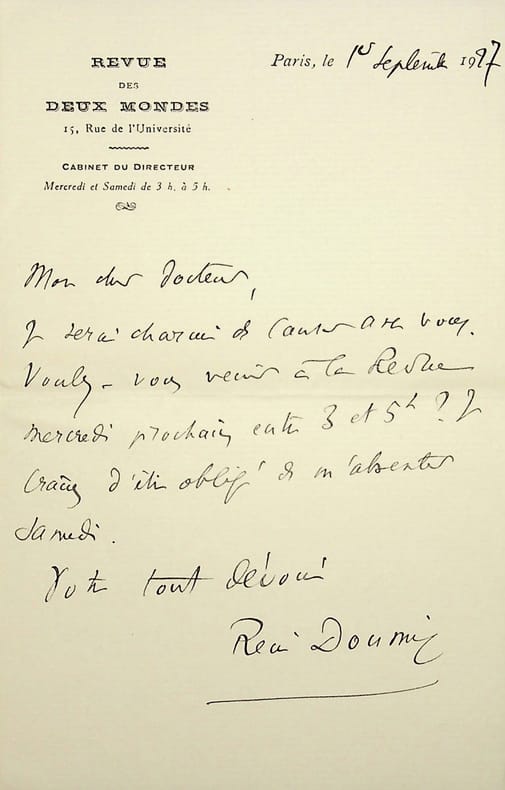 REVUE
DES
DEUX MONDES
15, Rue de l'Université
CABINET DU DIRECTEUR
Mercredi et Samedi de 3 h. à 5 h.
Paris, le 1er Septembre 19
Mon cher Docteur,
Je serai charmé de causer avec vous.
Voulez-vous venir à la Revue
mercredi prochain entre 3 et 5h ? Je
crains d'être obligé de m'absenter
samedi.
Votre tout dévoué
René Doumic